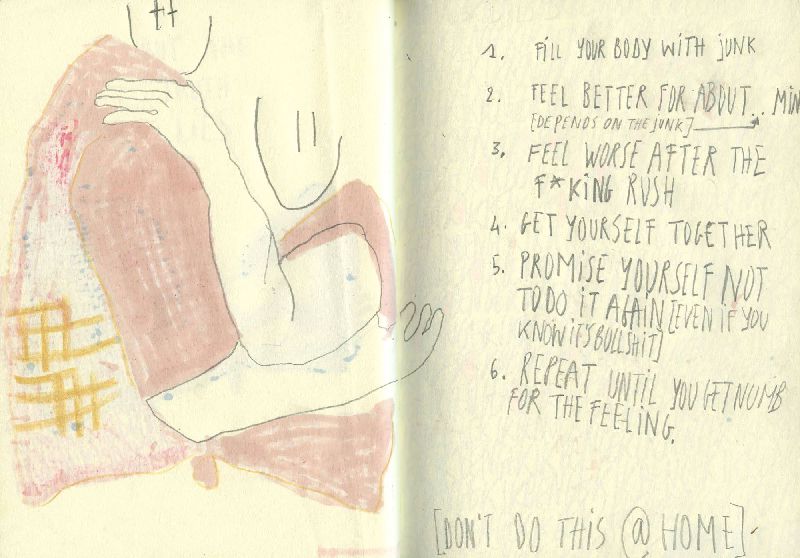 1. FILL YOUR BODY WITH JUNK
2. FEEL BETTER FOR ABOUT.. MIN
[DEPENDS ON THE JUNK]
3. FEEL WORSE AFTER THE
F*KING RUSH
4. GET YOURSELF TOGETHER
5. PROMISE YOURSELF NOT
TO DO IT AGAIN [EVEN IF YOU
KNOW IT'S BULLSHIT]
6. REPEAT UNTIL YOU GET NUMB
FOR THE FEELING.
[DON'T DO THIS @ HOME].